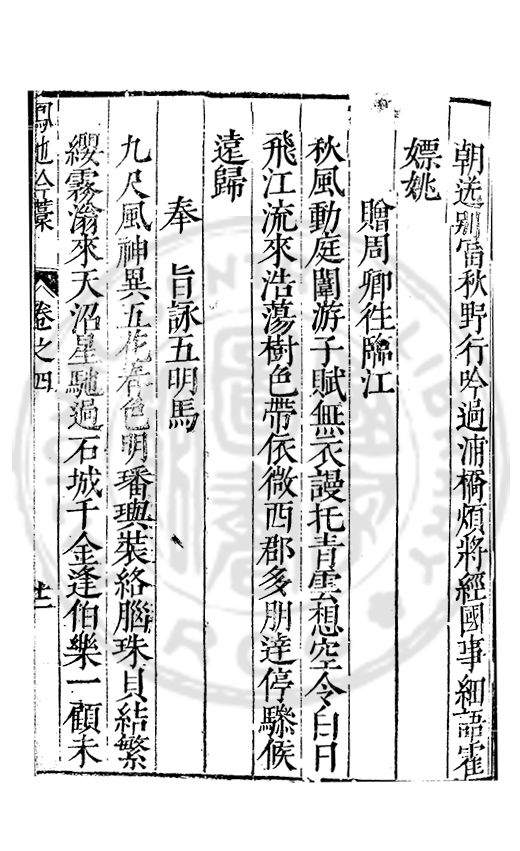 朝送別宿秋野行吟過浦橋煩將經國事細語霍
嫖姚
贈周卿往臨江
秋風動庭闈游子賦無衣謾托青雲想空令白日
飛江流來浩蕩樹色帶依微西郡多朋達停驂候
遠歸
奉 旨詠五明馬
九尺風神異五花春色明璠璵裝絡腦珠貝結繁
纓霧滃來天沼星馳過石城千金逢伯樂一顧未
卷之四
廿二